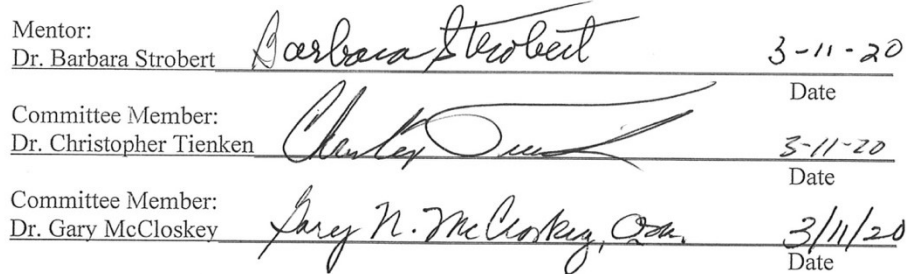 Mentor:
Dr. Barbara Strobert Barbara Strobert 3-11-20
Date
Committee Member:
Dr. Christopher Tienken 3-11-20
Date
Committee Member:
Dr. Gary McCloskey Gary N. McCloskey, 3/11/20
Date